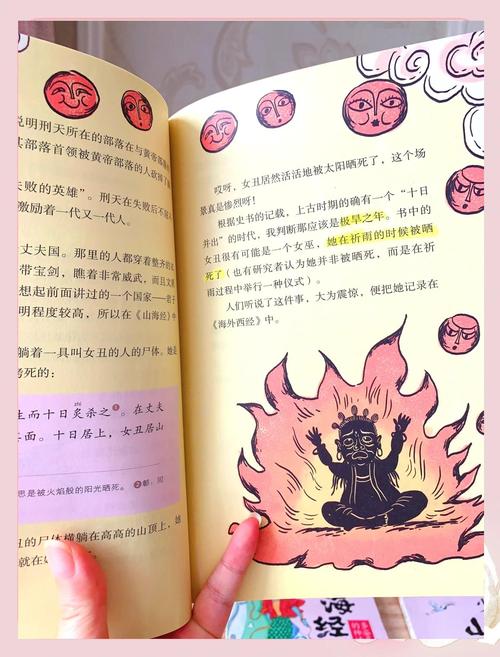 说明刑天所在的部落在与黄帝部落的
某部落首领被黄帝部落的人砍掉了
失败的英雄”。刑天在失败后不屈
激励着一代又一代人。
丈夫国。那里的人都穿着整齐的
带宝剑,瞧着非常威武,而且文
想起前面讲过的一个国家——君子
明程度较高,所以在《山海经》中
躺着一具叫女丑的人的尸体。她是
烤死的:
生而十日炙杀之❶。在丈夫
zhì
面。十日居上,女丑居山
思是被火焰般的阳光晒死。 ❷鄣:同
丑的尸体横躺在高高的山顶上,她
就在
哎呀,女丑居然活活地被太阳晒死了,这个场
景真是惨烈呀!
根据史书的记载,上古时期的确有一个“十日
并出”的时代,我判断那应该是极旱之年。书中的
女丑很有可能是一个女巫,她在祈雨的时候被晒
死了(也有研究者认为她并非被晒死,而是在祈
雨过程中举行一种仪式)。
人们听说了这件事,大为震惊,便把她记录在
《海外西经》中。
海
经